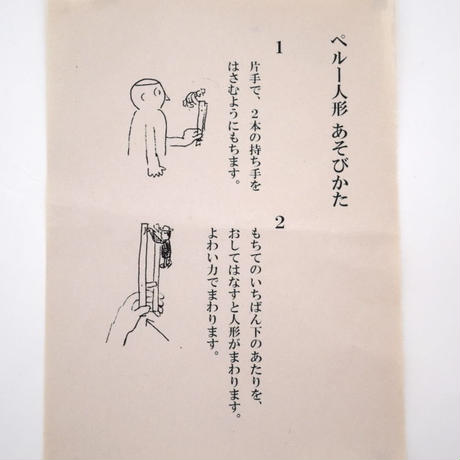 ペルー人形 あそびかた
1
片手で、2本の持ち手を
はさむようにもちます。
2
もちてのいちばん下のあたりを、
おしてはなすと人形がまわります。
よわい力でまわります。